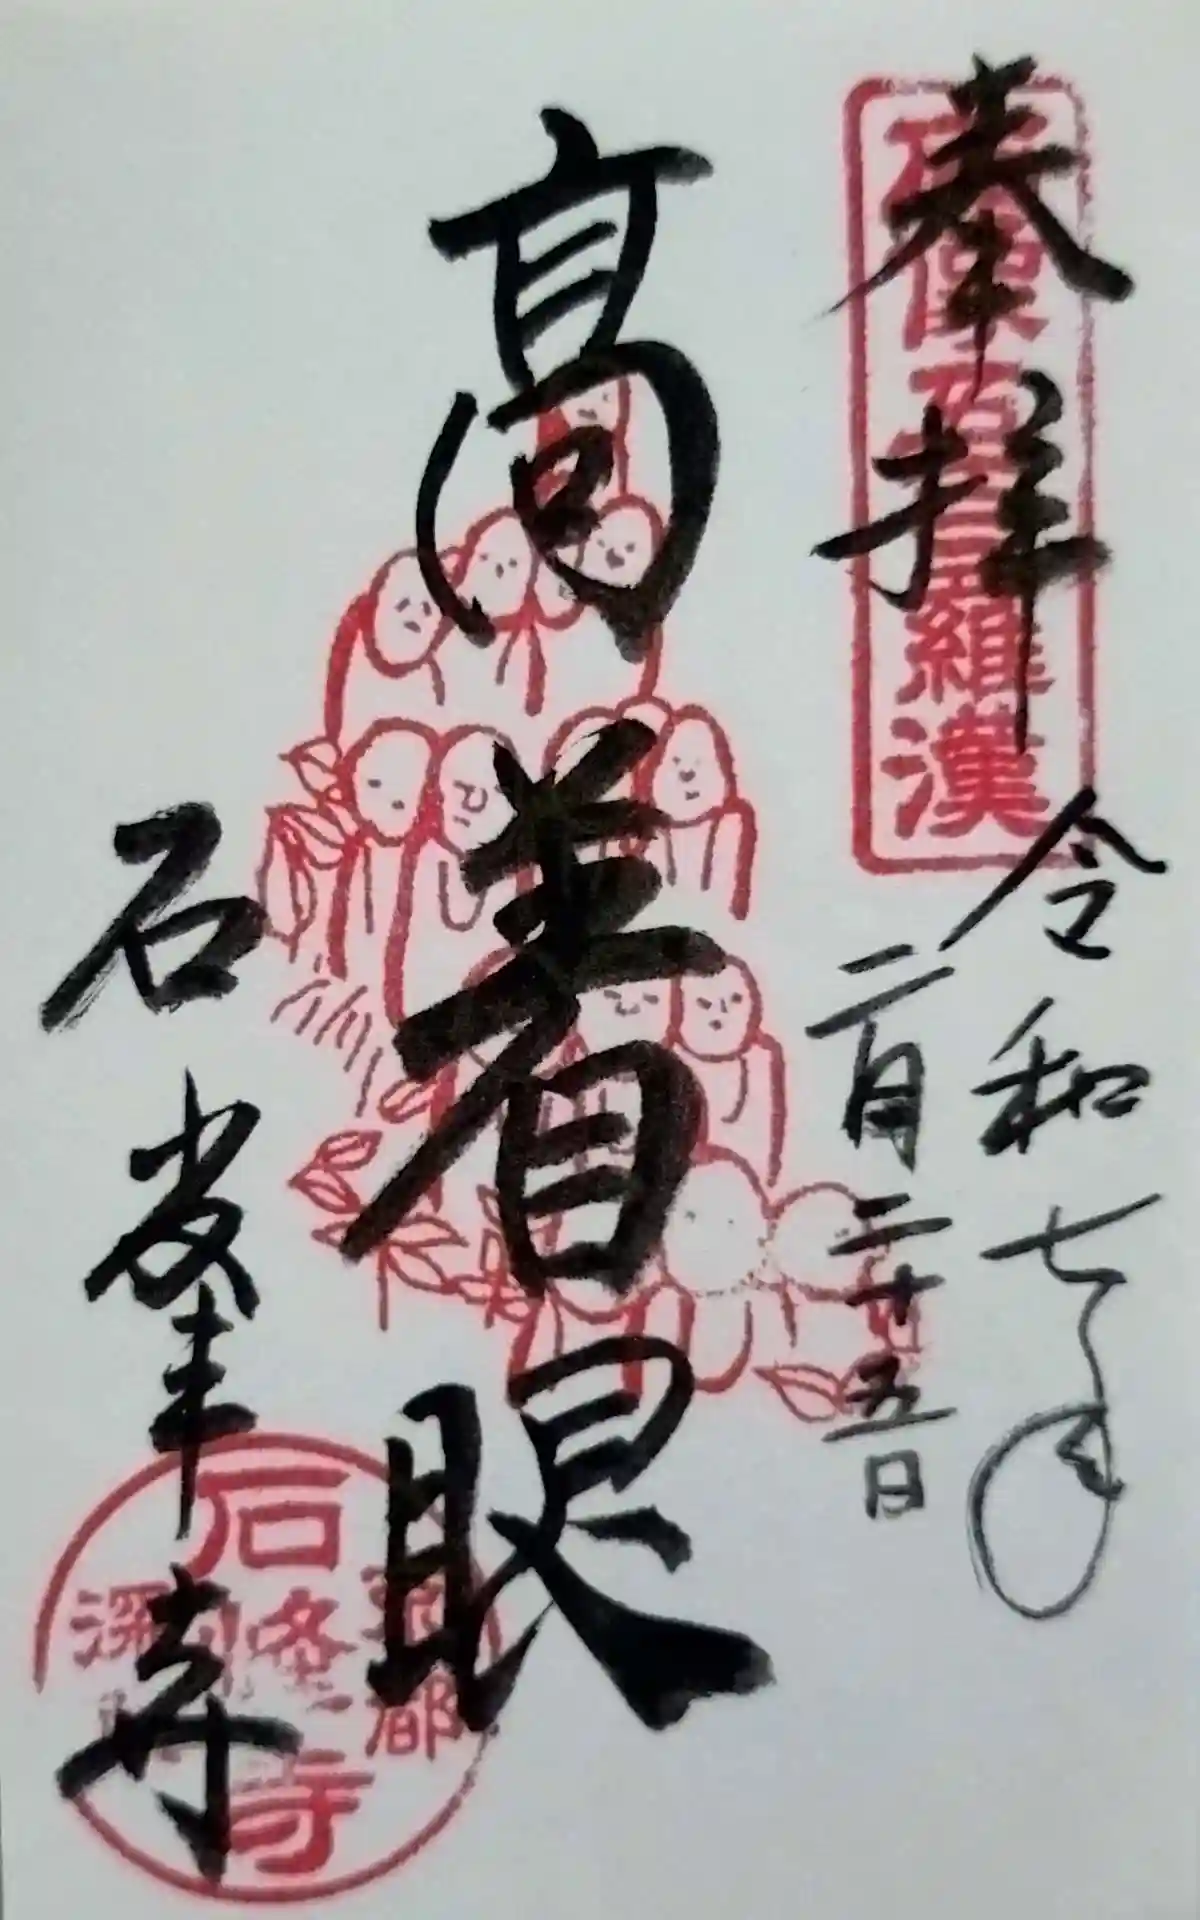 奉拝
石像石五百羅漢
令和七年
二月二十五日
高着眼
石峯寺
石峰寺
深
京都